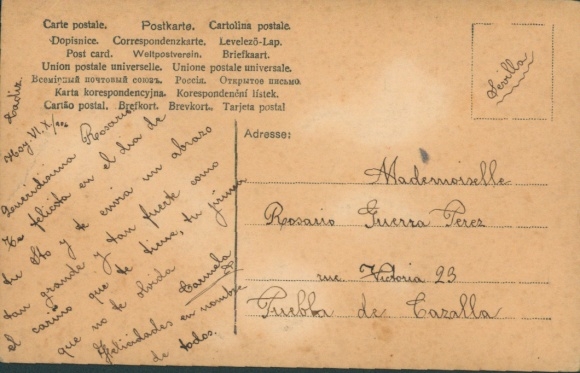 Carte postale. Postkarte. Cartolina postale.
Dopisnice. Correspondenzkarte. Levelező-Lap.
Post card. Weltpostverein. Briefkaart.
Union postale universelle. Unione postale universale.
Всемірный почтовый союзъ. Россія. Открытое письмо.
Karta korespondencyjna. Korespondenční lístek.
Cartão postal. Brefkort. Brevkort. Tarjeta postal
Sevilla
Cadiz.
Hoy VI. X/
Queridisima Rosario
Te felicita en el dia de
tu Sto y te envia un abrazo
tan grande y tan fuerte como
el cariño que te tiene, tu prima
que no te olvida
Carmela
Felicidades en nombre
de todos.
Adresse:
Mademoiselle
Rosario Guerra Perez
rue Victoria 23
Puebla de Cazalla